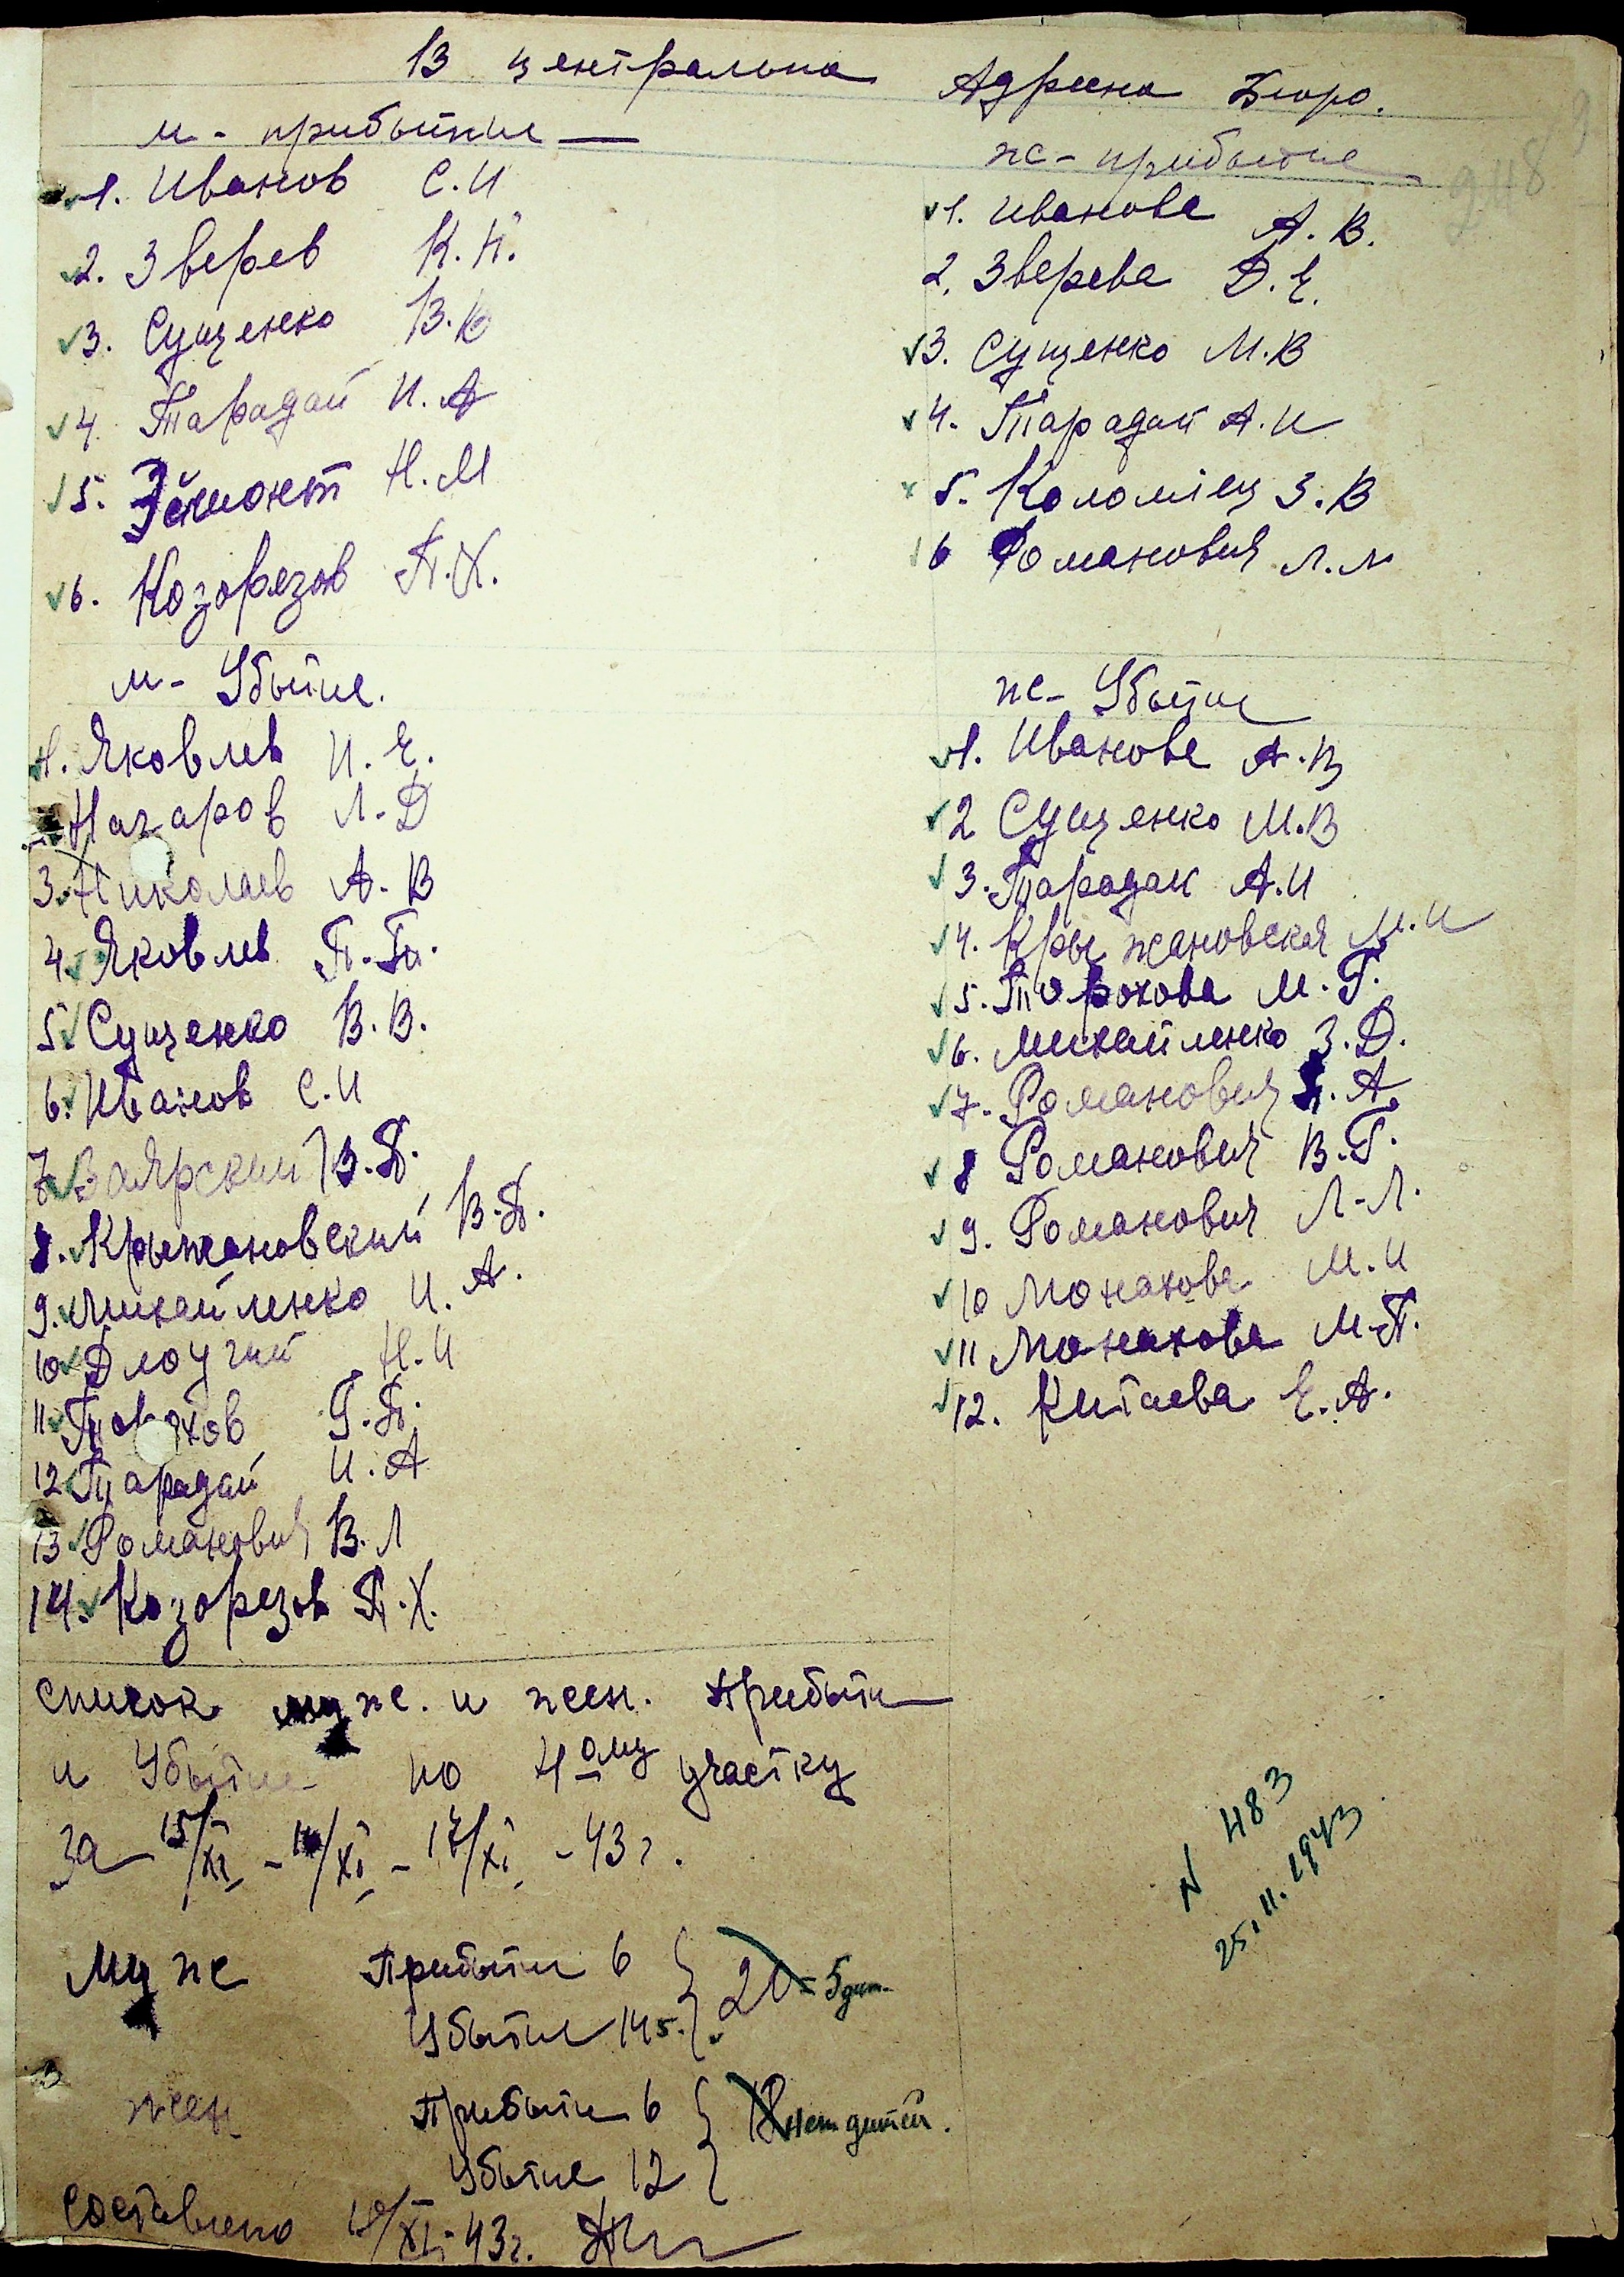 В центральна Адресна Бюро.
м - прибытие
1. Иванов С.И
2. Зверев К.Н.
3. Сущенко В.В
4 Тарадай И.А
5. Эймонт Н.М
6. Козорезов П.Х.
ж - прибытие
1. Иванова А.В.
2. Зверева Д.Е.
3. Сущенко М.В
4. Тарадай А.И
5. Коломіец З.В
6 Романович Л.Л
м - Убытие.
1. Яковлев И.Е.
Назаров Л.Д
3. Николаев А.В
4. Яковлев П.П.
5. Сущенко В.В.
6. Иванов С.И
7 Заярский В.П.
8. Крыжановский В.П.
9. Михайленко И.А.
10 Длоугий Н.И
11 Торохов Г.П.
12 Тарадай И.А
13 Романович В.Л
14. Козорезов П.Х.
ж - Убытие
1. Иванова А.В
2 Сущенко М.В
3. Тарадай А.И
4. Крыжановская М.И
5. Торохова М.Г.
6. Михайленко З.Д.
7. Романович А.
8 Романович В.Г.
9. Романович Л.Л.
10 Монахова М.И
11 Монахова М.П.
12. Китаева Е.А.
список муж. и жен. Прибыти
и Убытие по 4ому участку
За 15/XI - 16/XI - 17/XI - 43 г.
N 483
25.11.1943
Муж Прибыти 6
Убытие 14 5. 20 = 5 дит.
жен Прибыти 6
Убытие 12 18 нет дитей.
Составлено /XI - 43 г.